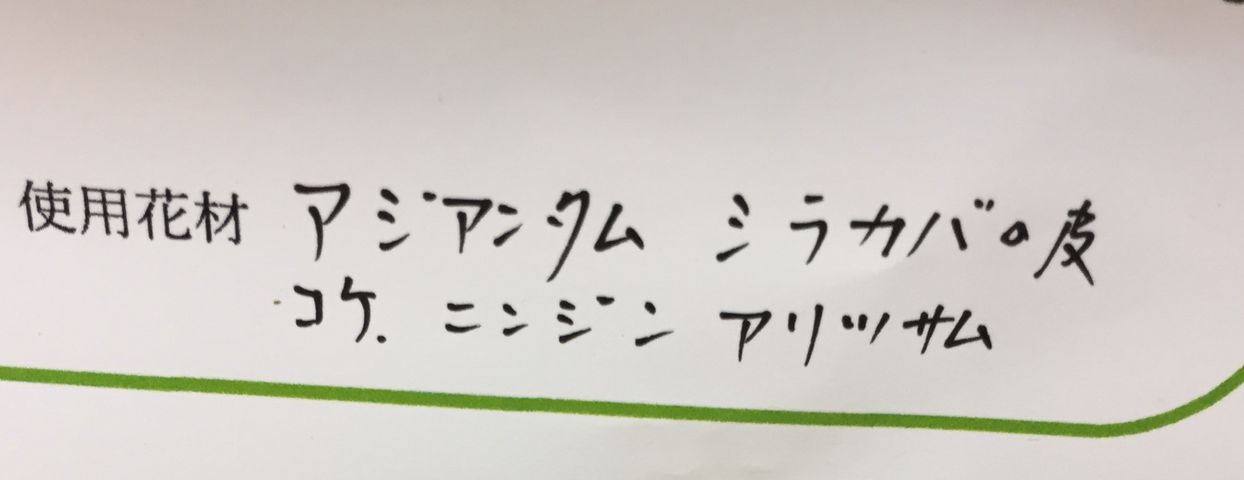 使用花材 アジアンタム シラカバの皮
コケ. ニンジン アリッサム